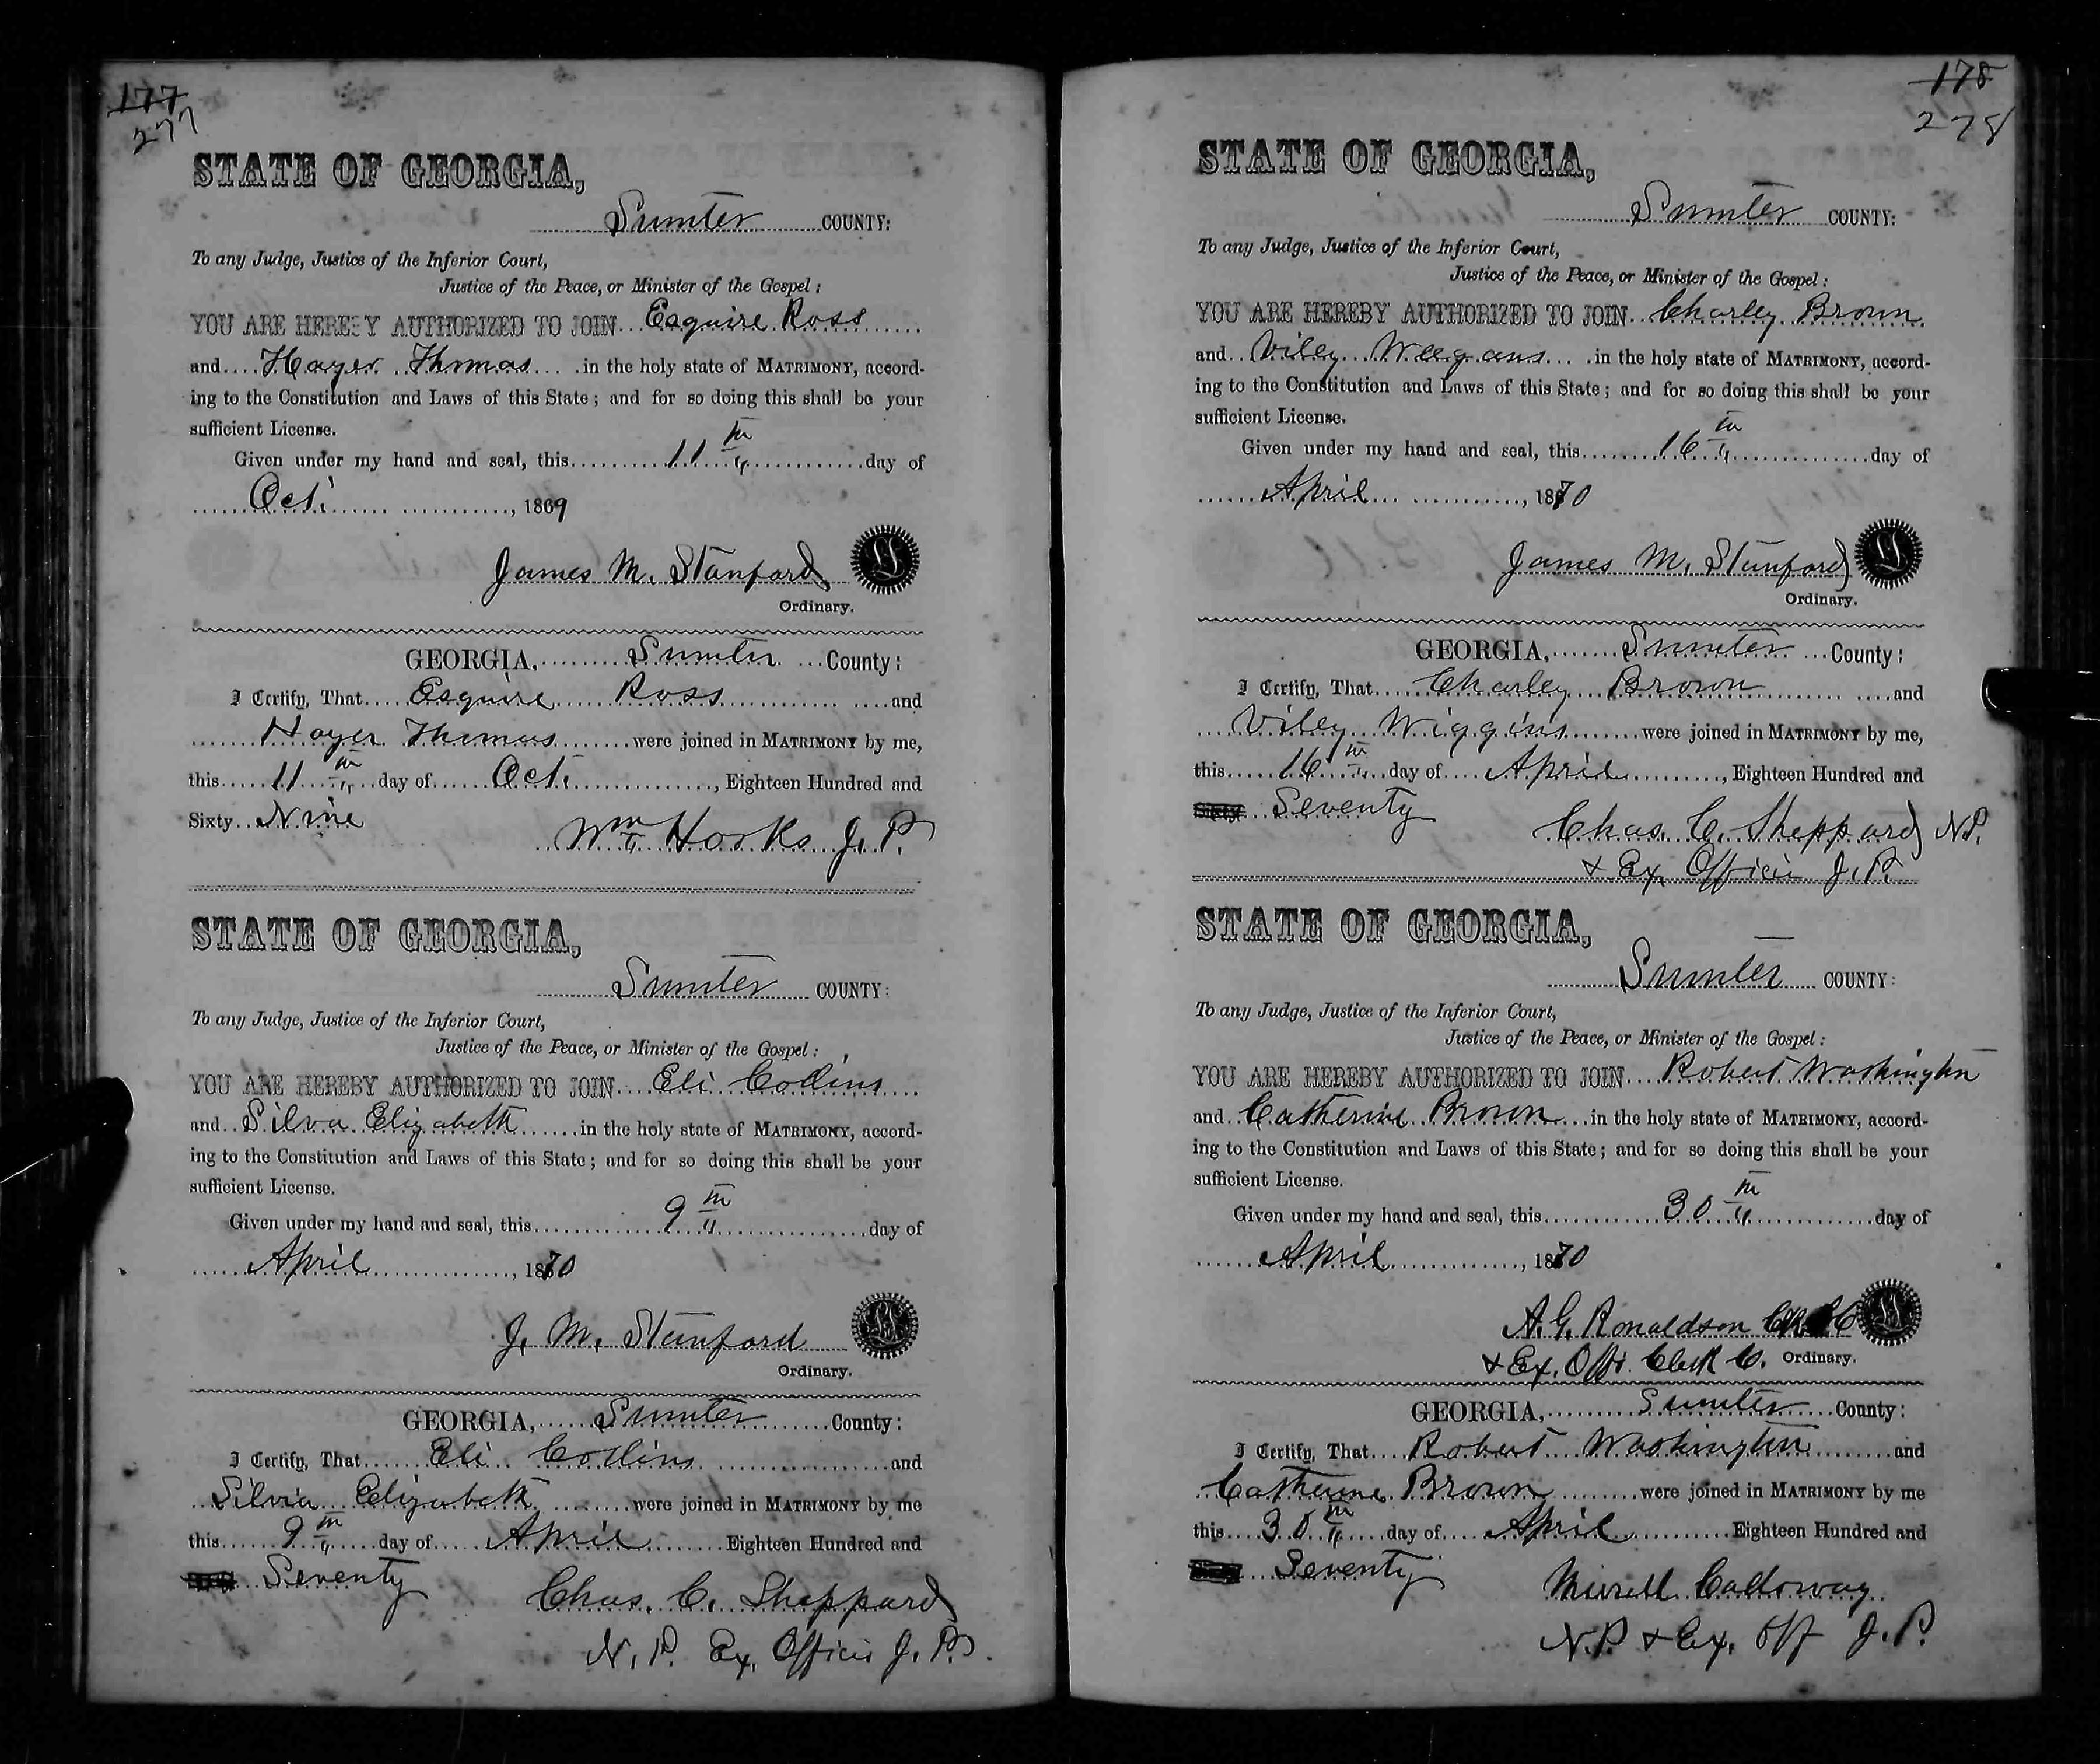 177
277
STATE OF GEORGIA,
Sumter COUNTY:
To any Judge, Justice of the Inferior Court,
Justice of the Peace, or Minister of the Gospel:
YOU ARE HEREBY AUTHORIZED TO JOIN Esquire Ross
and Hayer Thomas in the holy state of MATRIMONY, accord-
ing to the Constitution and Laws of this State; and for so doing this shall be your
sufficient License.
Given under my hand and seal, this 11th day of
Oct. , 1869
James M. Stanford
Ordinary.
GEORGIA, Sumter County:
I Certify, That Esquire Ross and
Hayer Thomas were joined in MATRIMONY by me,
this 11th day of Oct. , Eighteen Hundred and
Sixty Nine
Wm Hooks J. P.
STATE OF GEORGIA,
Sumter COUNTY:
To any Judge, Justice of the Inferior Court,
Justice of the Peace, or Minister of the Gospel:
YOU ARE HEREBY AUTHORIZED TO JOIN Eli Collins
and Silva Elizabeth in the holy state of MATRIMONY, accord-
ing to the Constitution and Laws of this State; and for so doing this shall be your
sufficient License.
Given under my hand and seal, this 9th day of
April , 1870
J. M. Stanford
Ordinary.
GEORGIA, Sumter County:
I Certify, That Eli Collins and
Silvia Elizabeth were joined in MATRIMONY by me
this 9th day of April Eighteen Hundred and
Seventy
Chas. C. Sheppard
N. P. Ex. Officio J. P.
178
278
STATE OF GEORGIA,
Sumter COUNTY:
To any Judge, Justice of the Inferior Court,
Justice of the Peace, or Minister of the Gospel:
YOU ARE HEREBY AUTHORIZED TO JOIN Charley Brown
and Viley Weegans in the holy state of MATRIMONY, accord-
ing to the Constitution and Laws of this State; and for so doing this shall be your
sufficient License.
Given under my hand and seal, this 16th day of
April , 1870
James M. Stanford
Ordinary.
GEORGIA, Sumter County:
I Certify, That Charley Brown and
Viley Wiggins were joined in MATRIMONY by me,
this 16th day of April , Eighteen Hundred and
Sixty Seventy
Chas. C. Sheppard N.P.
& Ex. Officio J. P.
STATE OF GEORGIA,
Sumter COUNTY:
To any Judge, Justice of the Inferior Court,
Justice of the Peace, or Minister of the Gospel:
YOU ARE HEREBY AUTHORIZED TO JOIN Robert Washington
and Catherine Brown in the holy state of MATRIMONY, accord-
ing to the Constitution and Laws of this State; and for so doing this shall be your
sufficient License.
Given under my hand and seal, this 30th day of
April , 1870
A. G. Ronaldson
& Ex. Offi. Clerk Co. Ordinary.
GEORGIA, Sumter County:
I Certify, That Robert Washington and
Catherine Brown were joined in MATRIMONY by me
this 30th day of April Eighteen Hundred and
Seventy
Murell Calloway
N.P. & Ex. Off J. P.